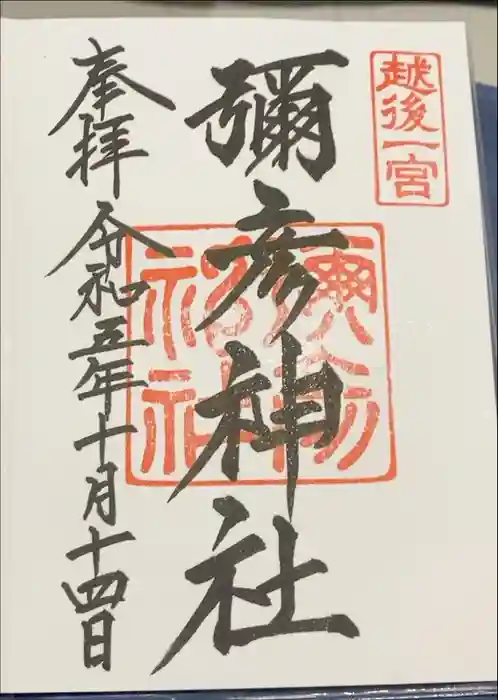 越後一宮
彌彦神社
奉拝 令和五年十月十四日